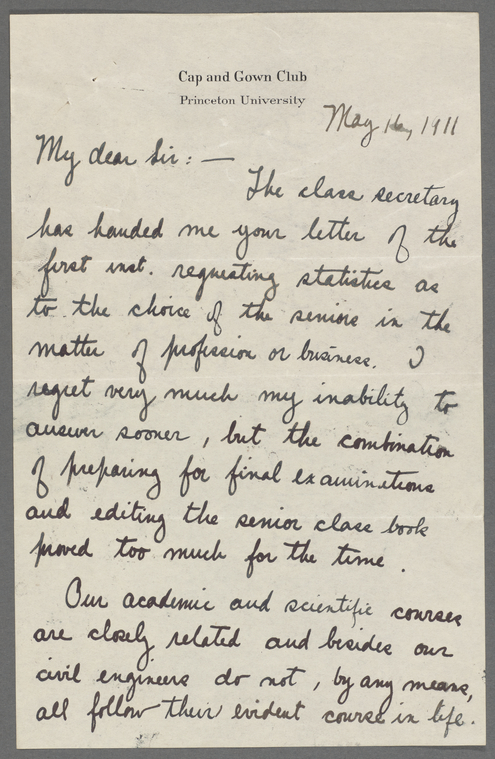 Cap and Gown Club
Princeton University
May 16, 1911
My dear Sir: —
The class secretary
has handed me your letter of the
first inst. requesting statistics as
to the choice of the seniors in the
matter of profession or business. I
regret very much my inability to
answer sooner, but the combination
of preparing for final examinations
and editing the senior class book
proved too much for the time.
Our academic and scientific courses
are closely related and besides our
civil engineers do not, by any means,
all follow their evident course in life.